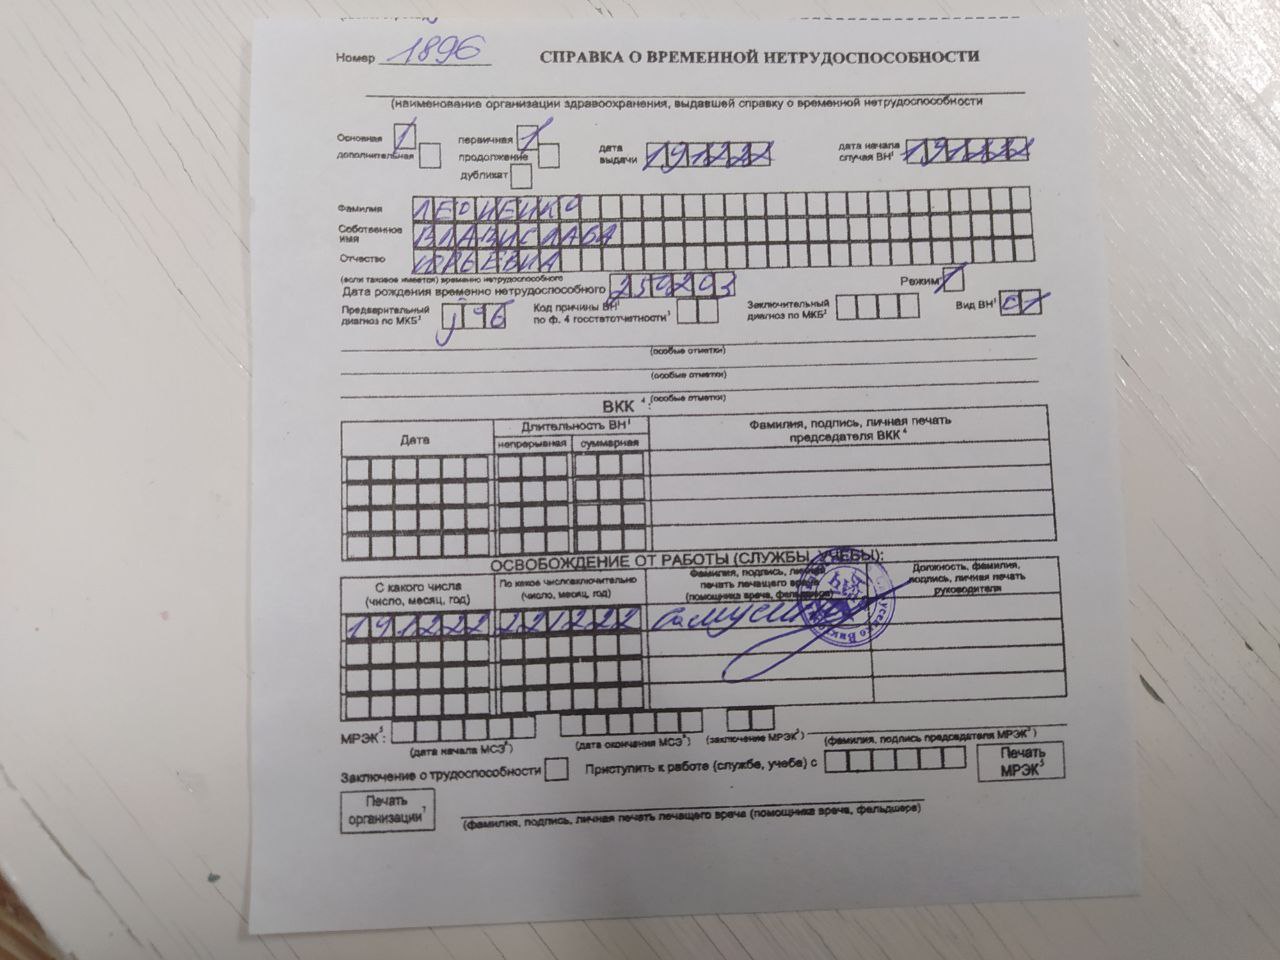 Номер 1896 СПРАВКА О ВРЕМЕННОЙ НЕТРУДОСПОСОБНОСТИ
(наименование организации здравоохранения, выдавшей справку о временной нетрудоспособности
Основная 1 первичная 1 дата выдачи 191222 дата начала случая ВН¹ 191222
дополнительная продолжение
дубликат
Фамилия ЛЕОНЕНКО
Собственное имя ВЛАДИСЛАВА
Отчество ЮРЬЕВНА
(если таковое имеется) временно нетрудоспособного
Дата рождения временно нетрудоспособного Режим 1
Предварительный диагноз по МКБ² Код причины ВН¹ по ф. 4 госстатотчетности³ Заключительный диагноз по МКБ² Вид ВН¹ 01
(особые отметки)
(особые отметки)
(особые отметки)
ВКК ⁴:
Дата Длительность ВН¹ Фамилия, подпись, личная печать председателя ВКК ⁴
непрерывная суммарная
ОСВОБОЖДЕНИЕ ОТ РАБОТЫ (СЛУЖБЫ, УЧЕБЫ):
С какого числа (число, месяц, год) По какое число включительно (число, месяц, год) Фамилия, подпись, личная печать лечащего врача (помощника врача, фельдшера) Должность, фамилия, подпись, личная печать руководителя
191222 221222
МРЭК⁵: (дата начала МСЭ⁶) (дата окончания МСЭ⁶) (заключение МРЭК⁵) (фамилия, подпись председателя МРЭК⁵)
Заключение о трудоспособности Приступить к работе (службе, учебе) с Печать МРЭК⁵
Печать организации⁷
(фамилия, подпись, личная печать лечащего врача (помощника врача, фельдшера)